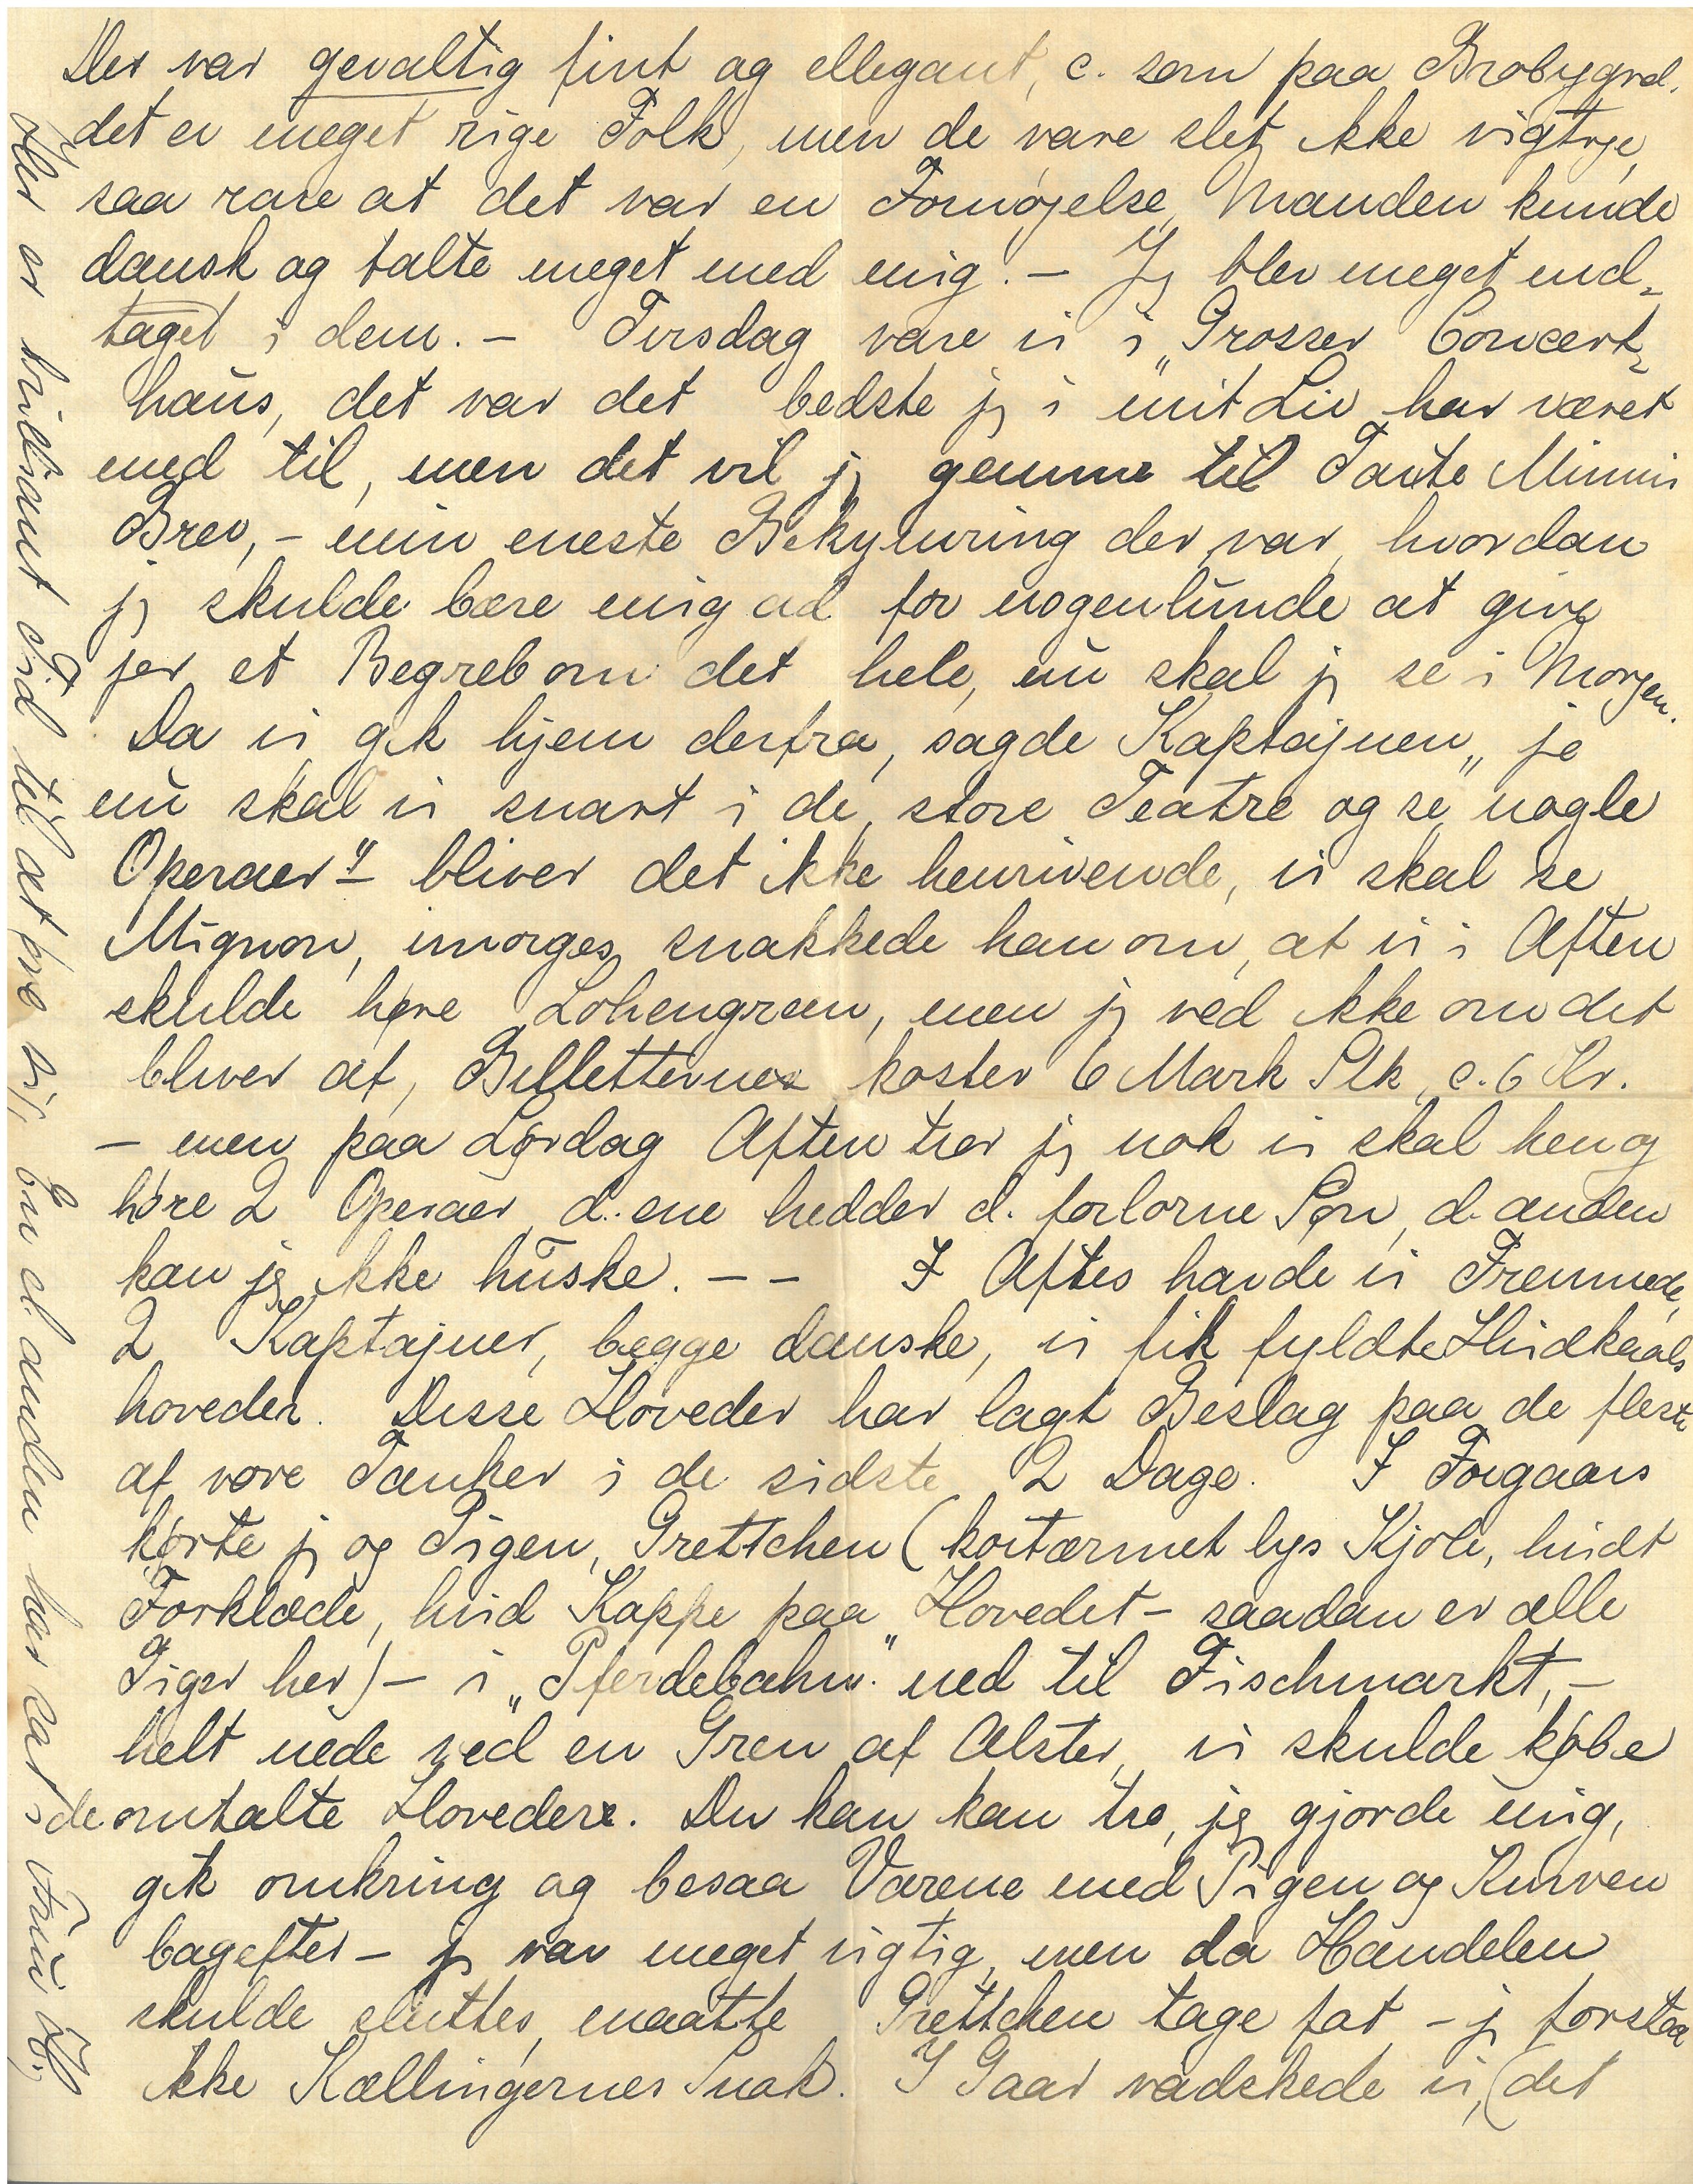 Der var gevaltig fint og ellegant, c. som paa Brobygrd.
det er meget rige Folk, men de vare slet ikke vigtige,
saa rare at det var en Fornøjelse, Manden kunde
dansk og talte meget med mig. – Jeg blev meget ind-
taget i dem. – Tirsdag vare vi i „Grosser Concert-
haus, det var det bedste jeg i mit Liv har været
med til, men det vil jeg gemme til Tante Mimis
Brev, – min eneste Bekymring der var, hvordan
jeg skulde bære mig ad for nogenlunde at give
jer et Begreb om det hele, nu skal jeg se i Morgen.
Da vi gik hjem derfra, sagde Kaptajnen „ja
nu skal vi snart i de store Teatre og se nogle
Operaer“ – bliver det ikke henrivende, vi skal se
Mignon, imorges snakkede han om, at vi i Aften
skulde høre Lohengreen, men jeg ved ikke om det
bliver af, Billetterne koster 6 Mark Stk, c. 6 Kr.
– men paa Lørdag Aften tror jeg nok vi skal hen og
høre 2 Operaer, d. ene hedder d. forlorne Søn, d. anden
kan jeg ikke huske. – – I Aftes havde vi Fremmede,
2 Kaptajner, begge danske, vi fik fyldte Hvidkaals
hoveder. Disse Hoveder har lagt Beslag paa de fleste
af vore Tanker i de sidste 2 Dage. I Forgaars
kørte jeg og Pigen, Grettchen (kortærmet lys Kjole, hvidt
Forklæde, hvid Kappe paa Hovedet – saadan er alle
Piger her) – i „Pferdebahn“ ned til Fischmarkt, –
helt nede ved en Gren af Alster, vi skulde købe
de omtalte Hoveder. Du kan kan tro, jeg gjorde mig,
gik omkring og besaa Varene med Pigen og Kurven
bagefter – jeg var meget vigtig, men da Handelen
skulde sluttes, maatte Grettchen tage fat – jeg forstaa
ikke Kællingernes Snak. I Gaar vadskede vi, (det
Her er brilliant Tid til at fire sig, En d. anden har sat i Fru H.